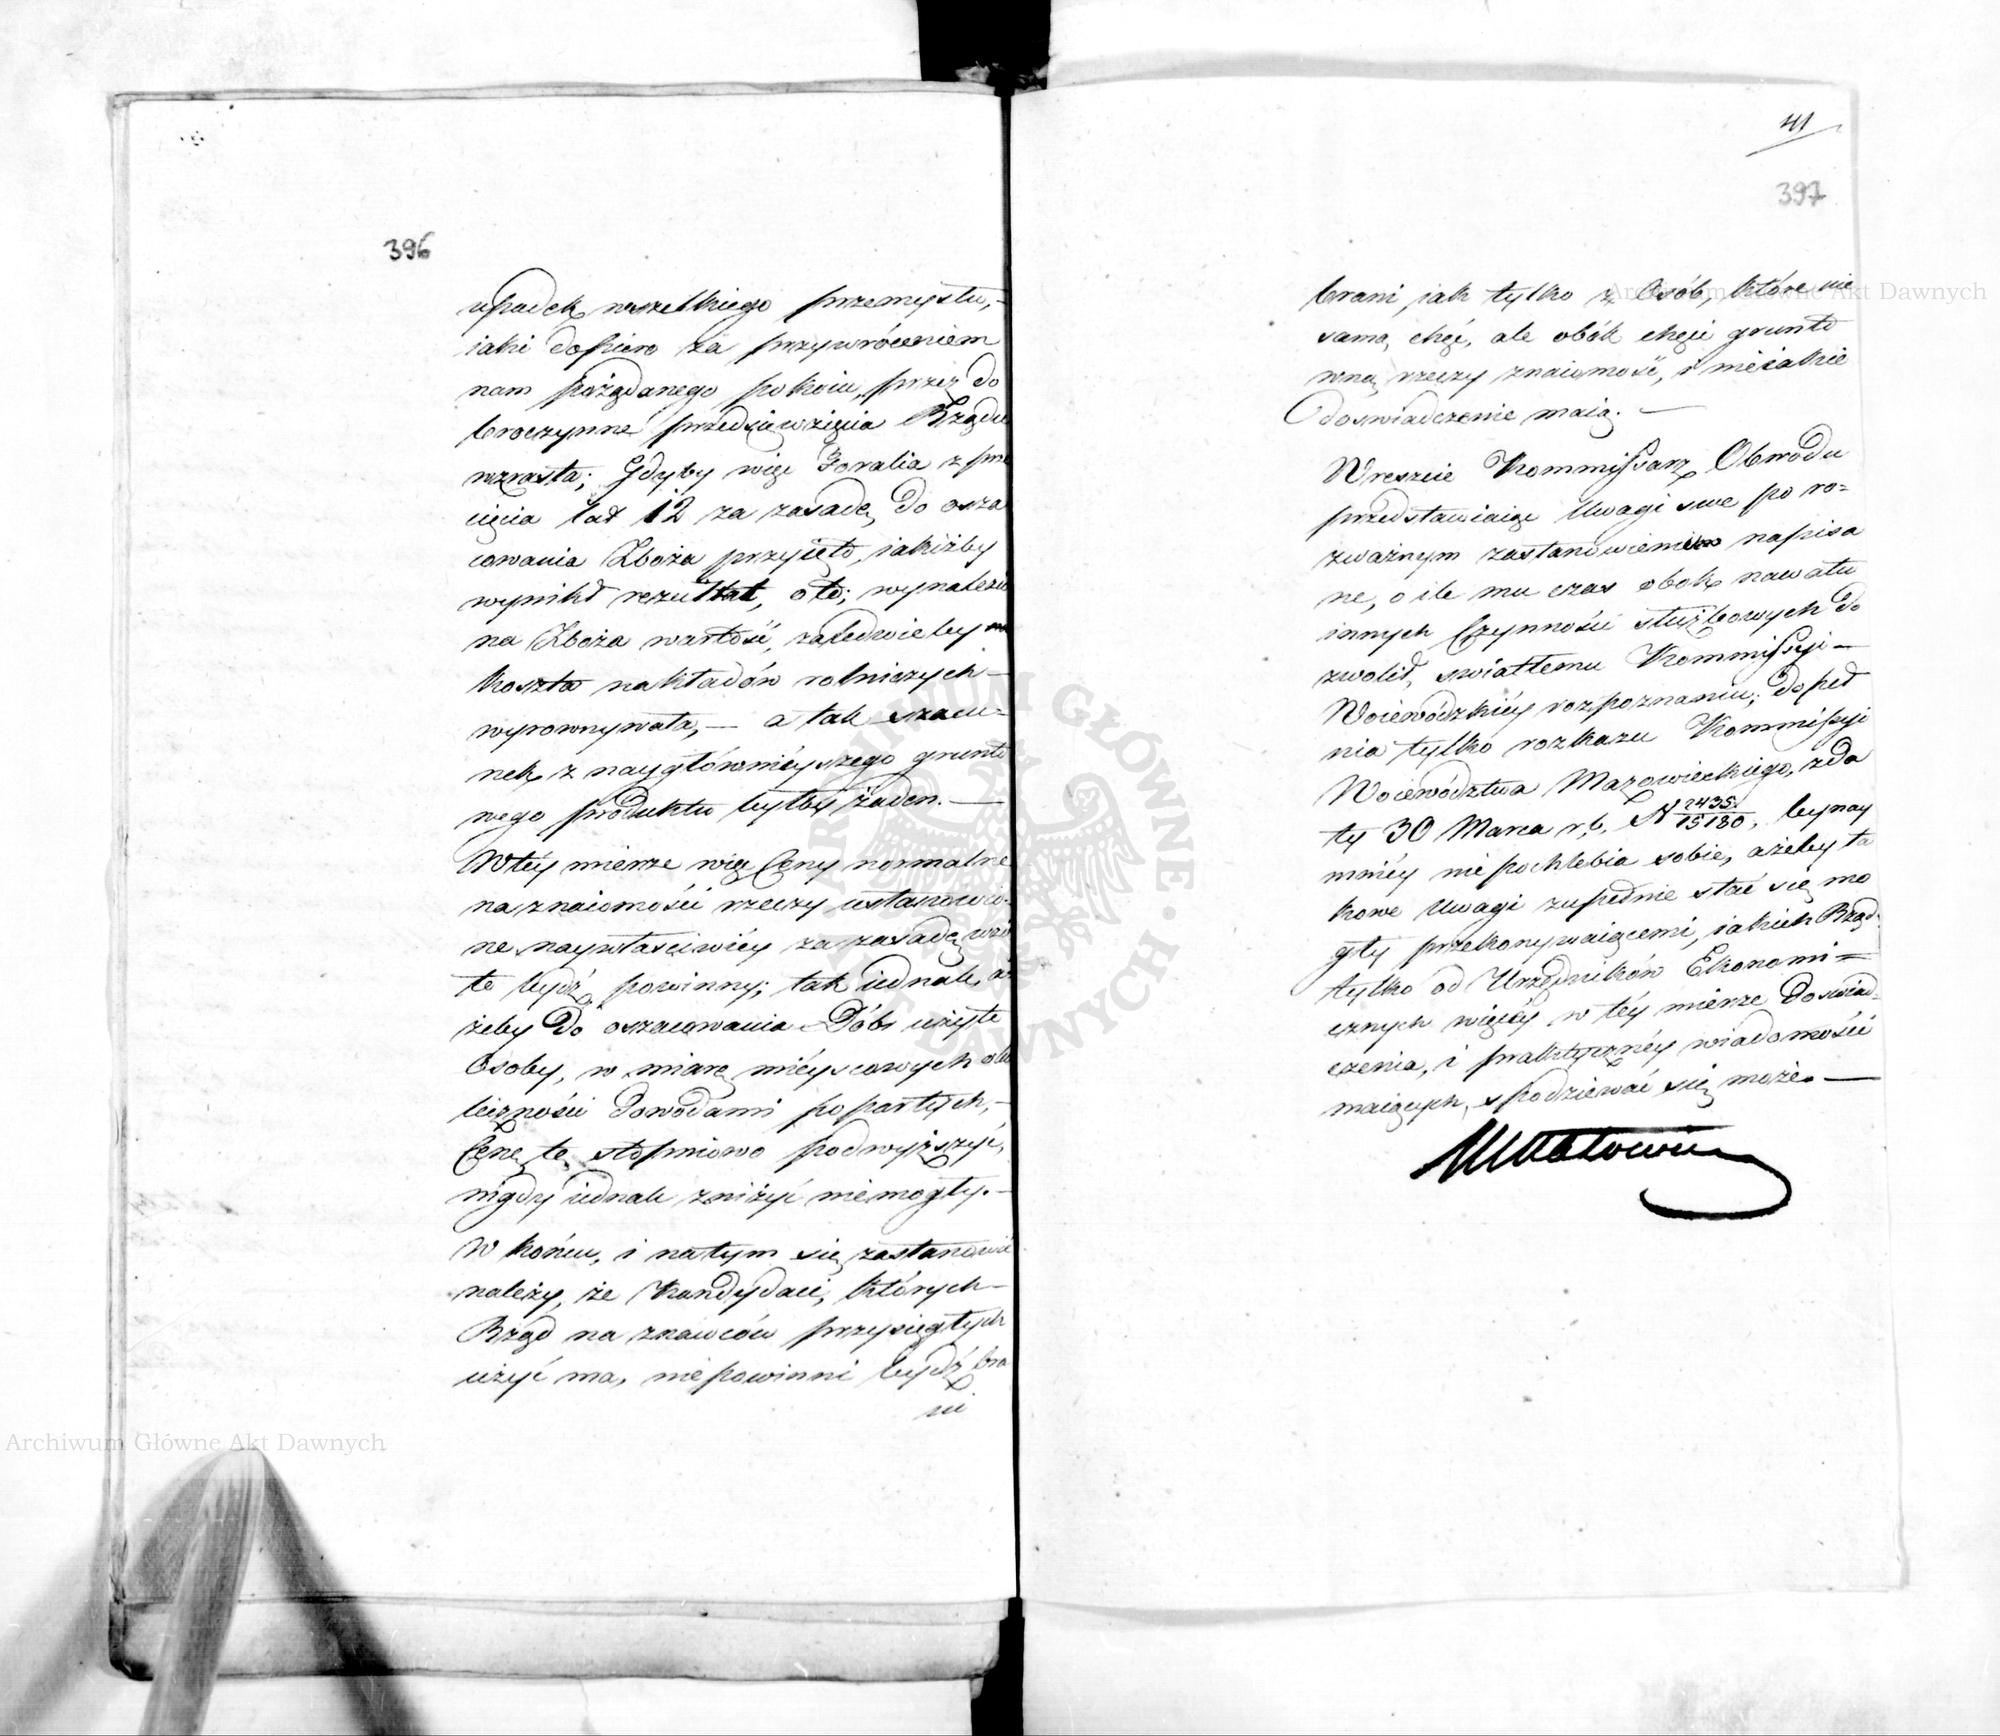 396
upadek wszelkiego przemysłu,
iaki dopiero za przywróceniem
nam pożądanego pokoiu, przez do
broczynne przedsięwzięcia Rządu
wzrasta; Gdyby więc Foralia z prze
cięcia lat 12 za zasadę do osza
cowania Zboża przyięto, iakiżby
wynikł rezultat, oto; wynalezio
na Zboża wartość, zaledwieby
koszta nakładów rolniczych
wyrownywała, — a tak szacu=
nek z naygłównieyszego grunto
wego produktu byłby żaden. —
W téy mierze więc Ceny normalne
na znaiomości rzeczy ustanowio-
ne naywłaściwiéy za zasadę wzię
te bydź powinny; tak iednak, a
żeby do oszacowania Dóbr użyte
Osoby, w miarę mieyscowych oko
liczności dowodami popartych,—
Cenę tę stopniowo podwyższyć,
nigdy iednak zniżyć nie mogły.—
W końcu, i na tym się zastanowić
należy, że Kandydaci, których
Rząd na znawców przysięgłych
użyć ma, nie powinni bydź bra
ni
41
397
brani, jak tylko z Osób, które nie
samą chęć, ale obók chęci grunto
wną rzeczy znaiomość, i nieiakie
doswiadczenie maią. —
Wreszcie Kommissarz Obwodu
przedstawiaiąc Uwagi swe po ro=
zważnym zastanowieniu napisa
ne, o ile mu czas obok nawału
innych Czynności służbowych do
zwolił, swiatłemu Kommissyi —
Woiewódzkiéy rozpoznaniu; dopeł
nia tylko rozkazu Kommissyi
Woiewództwa Mazowieckiego, z da
ty 30 Marca r.b. N 2435/15180, bynay
mniéy nie pochlebia sobie, ażeby ta
kowe Uwagi zupełnie stać się mo
gły przekonywaiącemi, iakich Rząd
tylko od Urzędników Ekonomi=
cznych więcéy w téy mierze doswiad-
czenia, i praktycznéy wiadomości
maiących, spodziewać się może. —
Archiwum Główne Akt Dawnych
Archiwum Główne Akt Dawnych
ARCHIWUM GŁÓWNE AKT DAWNYCH